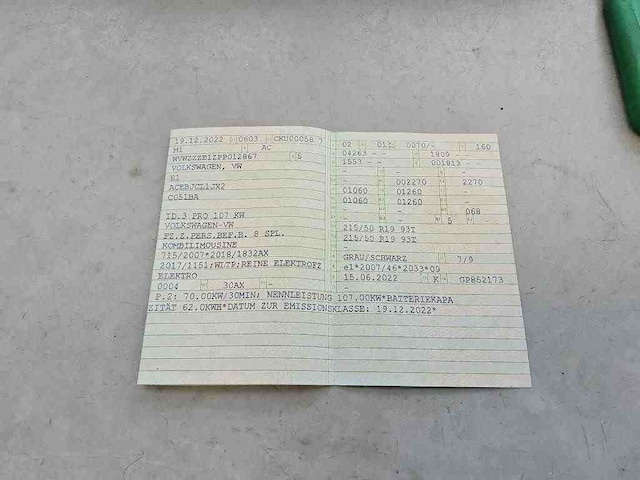 19.12.2022 0603 CKU00058 7
M1 AC
WVWZZZE1ZPP012867 5
VOLKSWAGEN, VW
E1
ACEBJCL1JX2
C051BA
ID.3 PRO 107 KW
VOLKSWAGEN-VW
FZ.Z.PERS.BEF.B. 8 SPL.
KOMBILIMOUSINE
715/2007*2018/1832AX
2017/1151;WLTP;REINE ELEKTROFZ
ELEKTRO
0004 30AX -
02 01 0070/- 160
04263 - - 1809 - -
1553 - - 001813 - -
- -
- 002270 2270
01060 01260 -
01060 01260 -
- - 068
- - 5 -
215/50 R19 93T
215/50 R19 93T
-
GRAU/SCHWARZ 7/9
e1*2007/46*2033*09
15.06.2022 K GP852173
-
P.2: 70.00KW/30MIN; NENNLEISTUNG 107.00KW*BATTERIEKAPA
ZITÄT 62.0KWH*DATUM ZUR EMISSIONSKLASSE: 19.12.2022*